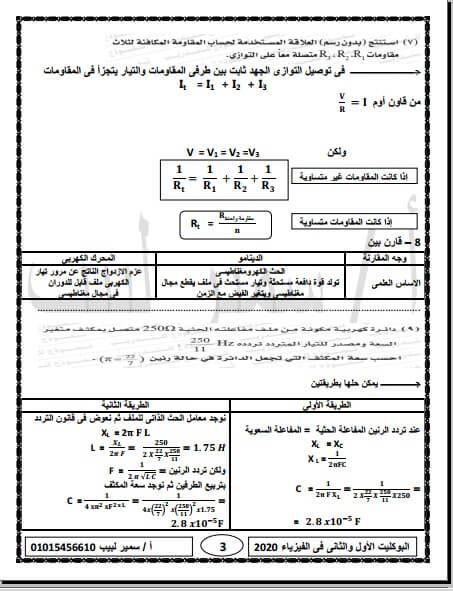 (٧) استنتج (بدون رسم) العلاقة المستخدمة لحساب المقاومة المكافئة لثلاث
مقاومات R₁ ، R₂ ، R₃ متصلة معاً على التوازى.
فى توصيل التوازى الجهد ثابت بين طرفى المقاومات والتيار يتجزأ فى المقاومات
Iₜ = I₁ + I₂ + I₃
من قاون أوم V/R = I
ولكن V = V₁ = V₂ =V₃
إذا كانت المقاومات غير متساوية 1/Rₜ = 1/R₁ + 1/R₂ + 1/R₃
إذا كانت المقاومات متساوية Rₜ = R مقاومة واحدة/n
8 – قارن بين
وجه المقارنة الدينامو المحرك الكهربى
الاساس العلمى
الحث الكهرومغناطيسى
تولد قوة دافعة مستحثة وتيار مستحث فى ملف يقطع مجال
مغناطيسى ويتغير الفيض مع الزمن
عزم الازدواج الناتج عن مرور تيار
الكهربى ملف قابل للدوران
فى مجال مغناطيسى
(٩) دائرة كهربية مكونة من ملف مفاعلته الحثية 250Ω متصل بمكثف متغير
السعة ومصدر للتيار المتردد تردده 250/11 Hz
احسب سعة المكثف التى تجعل الدائرة فى حالة رنين (π = 22/7) .
يمكن حلها بطريقتين
الطريقة الأولي
عند تردد الرنين المفاعلة الحثية = المفاعلة السعوية
X_L = X_C
X_L = 1/2πFC
C = 1/2π F X_L = 1/2 X 22/7 X 250/11 X250 =
= 2.8 x10⁻⁵ F
الطريقة الثانية
نوجد معامل الحث الذاتى للملف ثم نعوض فى قانون التردد
X_L = 2π F L
L = X_L/2π F = 250/2 X 22/7 X 250/11 = 1.75 H
ولكن تردد الرنين = F = 1/2 π √LC
بتربيع الطرفين ثم نوجد سعة المكثف
C = 1/4 xπ² xF² x L = 1/4x(22/7)² x(250/11)² x1.75 =
2.8 x10⁻⁵ F
البوكليت الأول والثانى فى الفيزياء 2020
3
أ / سمير لبيب 01015456610